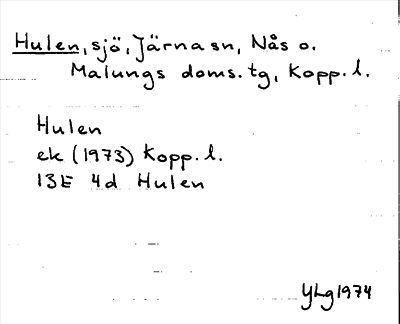 Hulen, sjö, Järna sn, Nås o.
Malungs doms. tg, Kopp. l.
Hulen
ek (1973) Kopp. l.
13E 4d Hulen
YLg 1974